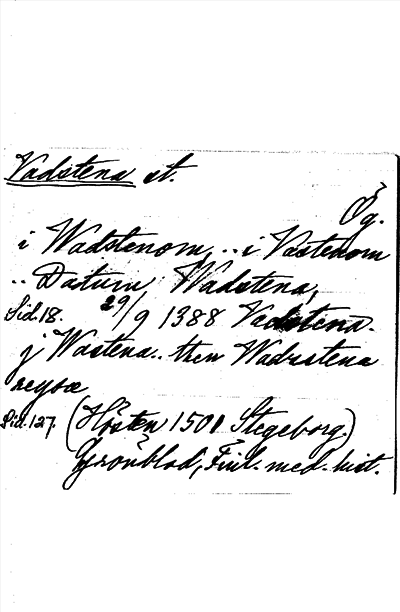 Vadstena st.
Ög.
i Wadstenom, .. i Vastenom
.. Datum Wadstena,
Sid. 18. 29/9 1388 Vadstena.
j Wastena .. then Wadzstena
reysæ
Sid. 127. (Hösten 1501 Stegeborg.)
Grönblad, Finl. med. hist.